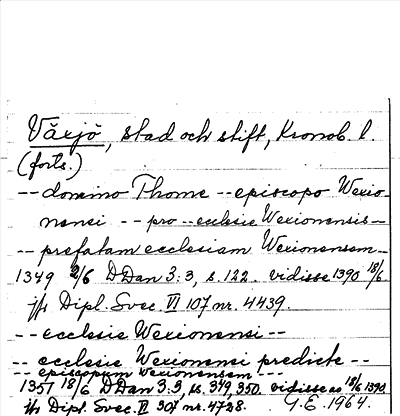 Växjö, stad och stift, Kronob. l.
(forts.)
-- domino Thome -- episcopo Wexio-
nensi -- pro -- ecclesie Wexionensis --
-- prefatam ecclesiam Wexionensem --
1349 2/6 DDan 3:3, s. 122. vidisse 1390 18/6
jfr Dipl. Svec. VI 107 nr. 4439.
-- ecclesie Wexionensi --
-- ecclesie Wexionensi predicte --
-- episcopum Wexionensem --
1351 18/6 DDan 3:3, ss. 349, 350. vidisse as 18/6 1390
jfr Dipl. Svec. VI 307 nr. 4728. G.E. 1964.